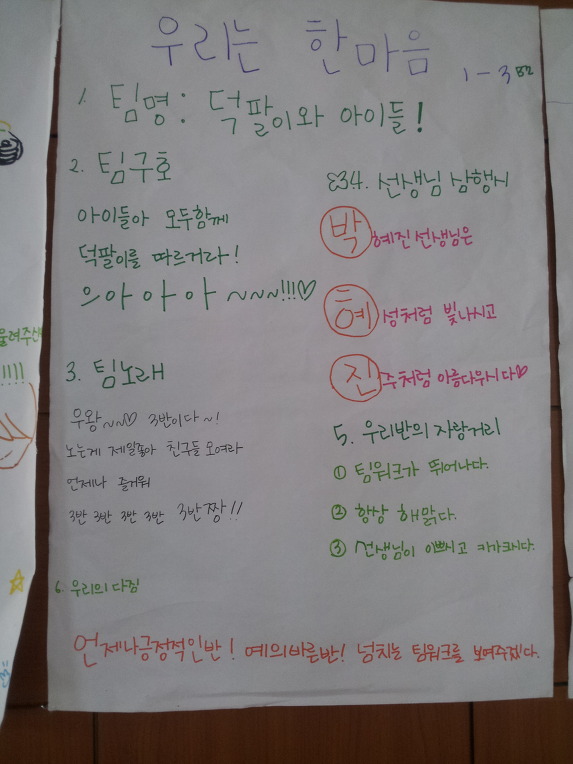 우리는 한마음
1-3 반
1. 팀명: 덕팔이와 아이들!
2. 팀구호
아이들아 모두함께
덕팔이를 따르거라!
으아아아~~~!!!♡
3. 팀노래
우왕~~♡ 3반이다~!
노는게 제일좋아 친구들 모여라
언제나 즐거워
3반 3반 3반 3반 3반짱!!
4. 선생님 삼행시
박혜진선생님은
혜성처럼 빛나시고
진주처럼 아름다우시다♡
5. 우리반의 자랑거리
① 팀워크가 뛰어나다.
② 항상 해맑다.
③ 선생님이 이쁘시고 키가크시다.
6. 우리의 다짐
언제나긍정적인반! 예의바른반! 넘치는 팀워크를 보여주겠다.
울려주신
!!!!